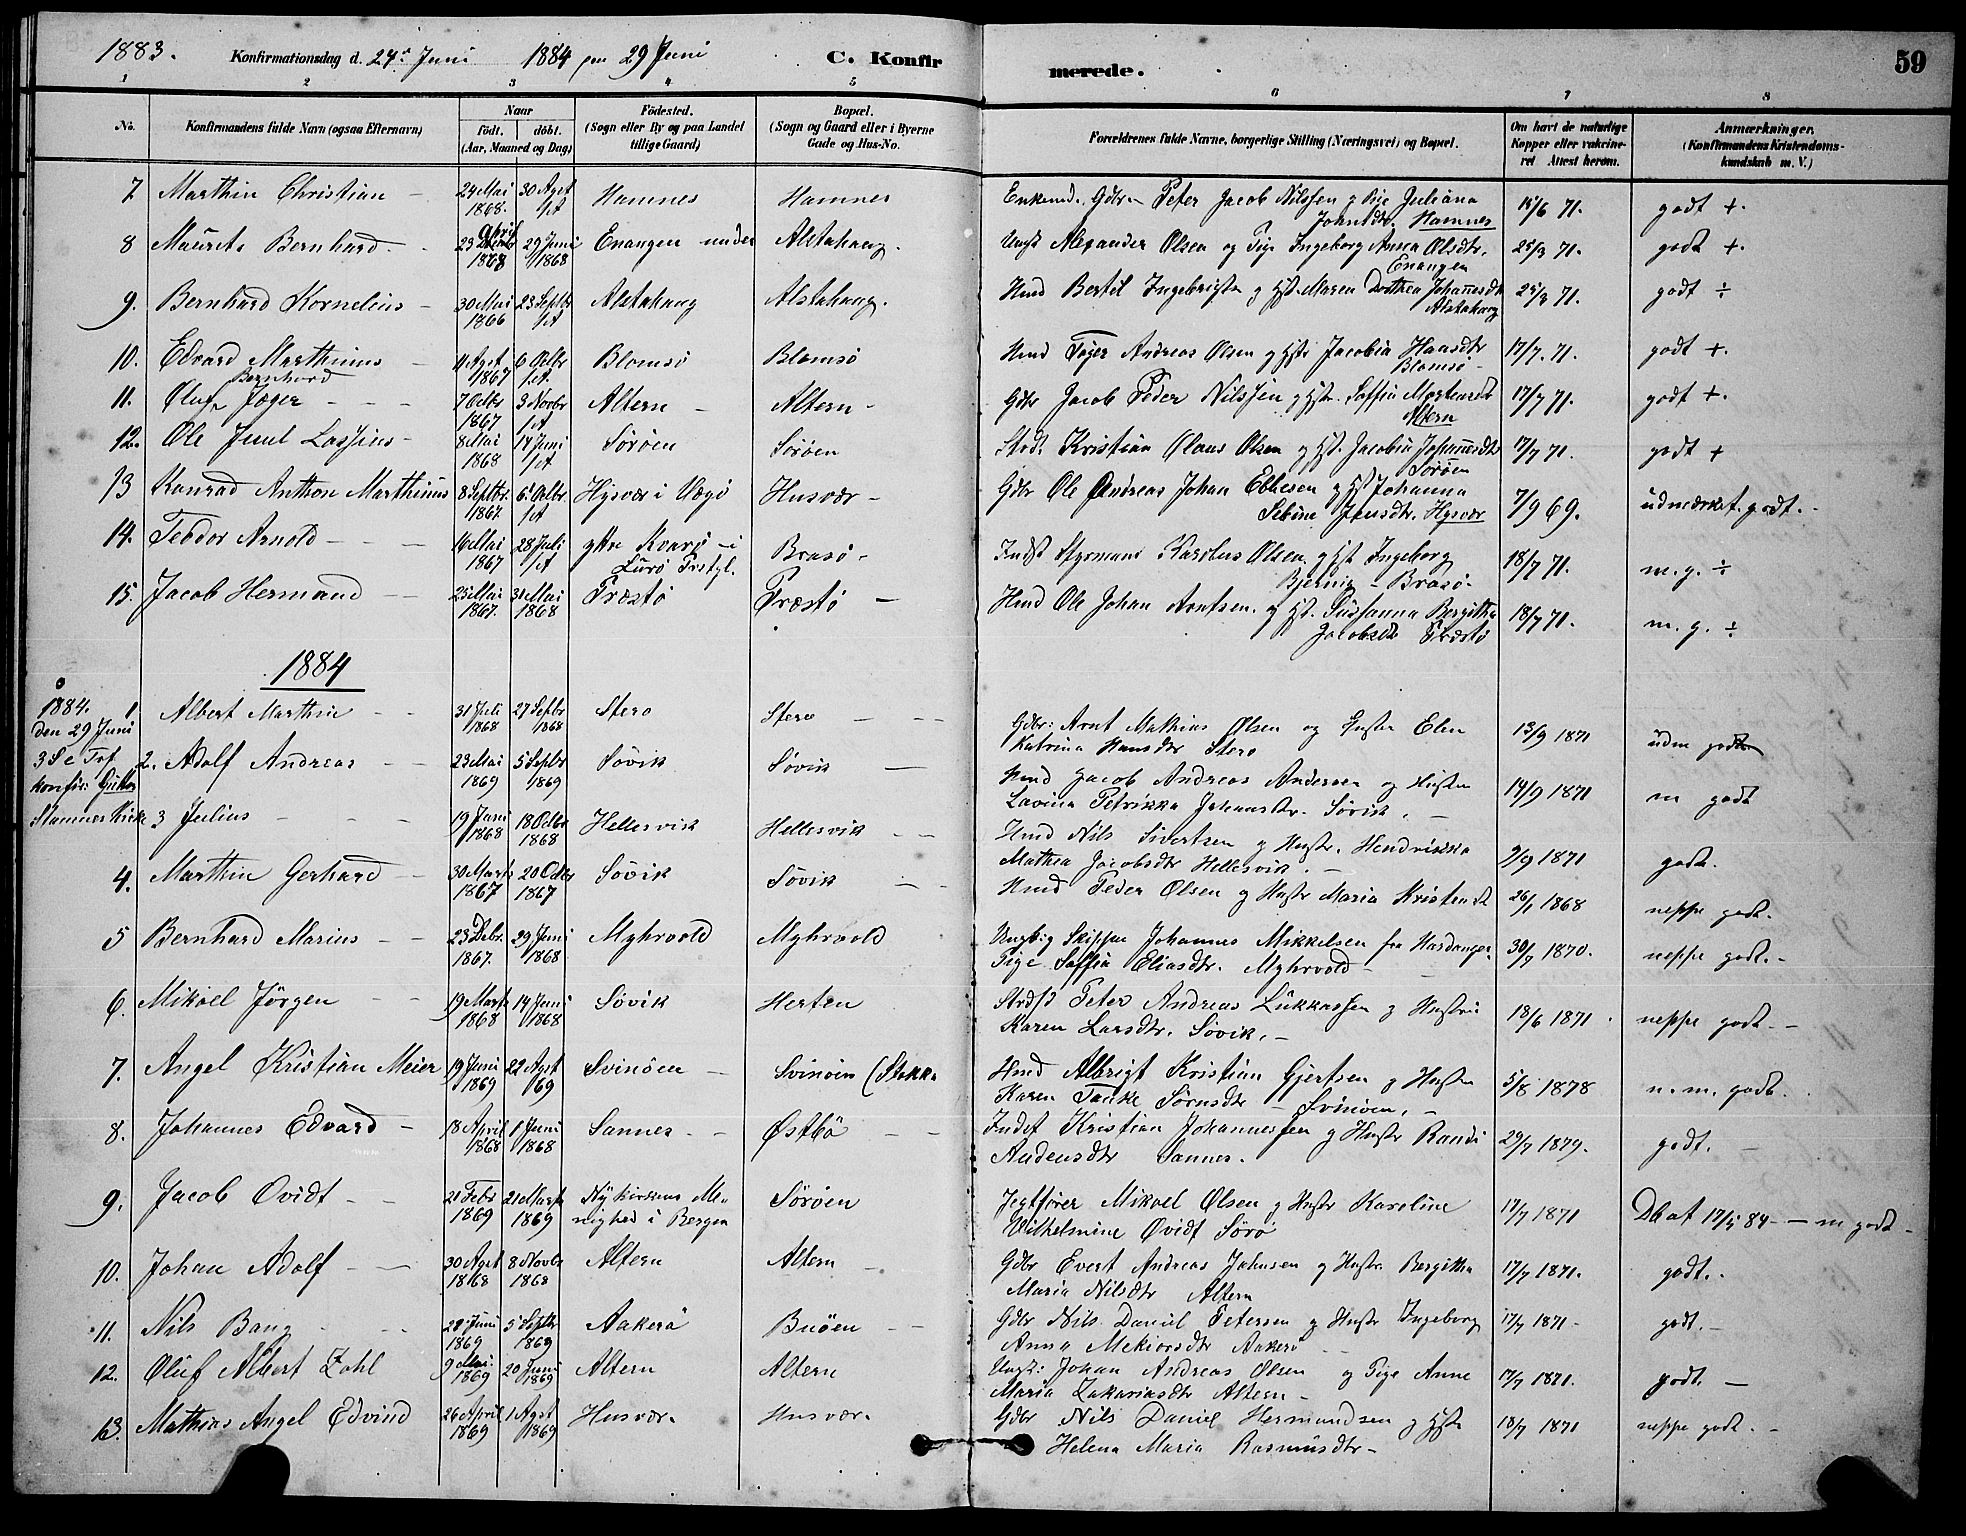 1883. Konfirmationsdag d. 24de Juni 1884 paa 29 Juni C. Konfir merede. 59
1 2 3 4 5 6 7 8
No. Konfirmandens fulde Navn (ogsaa Efternavn) Naar födt. döbt. (Aar, Maaned og Dag) Födested. (Sogn eller By og paa Landet tillige Gaard) Bopæl. (Sogn og Gaard eller i Byerne Gade og Hus-No. Forældrenes fulde Navne, borgerlige Stilling (Næringsvei) og Bopæl. Om havt de naturlige Kopper eller vakcineret Attest herom. Anmærkninger. (Konfirmandens Kristendomskundskab m. V.)
7 Marthin Christian - 24 Mai 1868. 30 Agst s/A Hamnes Hamnes Enkemd. Gdbr. Peter Jacob Nilssen g Pige Juliana Johnsdtr. Hamnes 15/6 71. godt +.
8 Maurits Bernhard - 23 April 1868 29 Juni 1868 Enangen under Alstahaug. Ungk Alexander Olsen og Pige Ingeborg Anna Olsdtr. Enangen 25/3 71. godt +.
9. Bernhard Kornelius - 30 Mai 1866 23 Septbr s/A Alstahaug Alstahaug. Hmd Bertil Ingebrigtsen g Hst. Maren Dorthea Johansdtr Alstahaug 25/3 71. godt ÷
10. Edvard Marthinus - 11 Agst 1867 6 Octbr s/A. Blomsö Blomsö Hmd Töger Andreas Olsen g Hstr Jacobia Haasdtr Blomsö - 17/7. 71. godt +.
11. Oluf Bernhard Jæger - - - 7 Octbr 1867 3 Novbr s/A Altern - Altern - Gdbr Jacob Peder Nilssen g Hstr. Soffia Altern 17/7 71. godt +.
12. Ole Juul Lassius - 8 Mai 1868 14 Juni s/A Söröen Söröen Kristian Claus Olsen g Hst. Jacobia Johansdtr Söröen 17/7 71. godt +
13 Konrad Anthon Marthinus 8 Septbr. 1867 6 Octbr. s/A Hysvær i Vegö Husvær - Gdbr Ole Andreas Johan Ebbesen g Hst Johanna Sebine Jensdtr. Hysvær 7/9 69. udmærket godt. -
14. Teodor Arnold - - - 16 Mai 1867 28 Juli s/A yttre Kvarö - i Lurö Prstgl. Brasö - Indst Styrmand Karolus Olsen g Hst Ingeborg Bjernig - Brasö. 18/7 71. m. g. ÷
15. Jacob Hermand - - 25 Mai 1867. 31 Mai 1868 Præstö Præstö - Hmd Ole Johan Arntsen. g Hst. Sussanna Bergitha Jacobsdtr Præstö 18/7 71. m. g. ÷
1884
1884. den 29 Juni 3 S e Tref konfir: Stamnes Kirke
1. Albert Marthin - - 31 Juli 1868 27 Septbr 1868 Stero Stero - - - Gdbr: Arnt Mathias Olsen og Hustru Elen Katrina Hansdtr Stero 13/9 1871 udm godt
2. Adolf Andreas - - 23 Mai 1869 5 Septbr 1869 Sövik Sövik - Hmd Jacob Andreas Andersen og Hustru Lavina Petrikka Johansdtr. Sövik. - 14/9 1871 m godt
3 Julius - - - 19 Juni 1868 18 Octbr 1868 Hellesvik Hellesvik - - Hmd Nils Sivertsen g Hustr. Hendrikka Mathea Jacobsdtr Hellesvik. - 9/9 1871 godt.
4. Marthin Gerhard - 30 Marts 1867 20 Octbr 1867 Sövik Sövik - - Hmd Peder Olsen g Hustr Maria Kristensdt 26/1 1868 neppe godt.
5 Bernhard Marius - - 23 Debr. 1867. 29 Juni 1868 Myhrvold Myhrvold Ungkig Skipper Johannes Mikkelsen fra Hardanger. Pige Soffia Eliasdtr. Myhrvold - - 30/7 1870. neppe godt. -
6. Mikael Jörgen - - 19 Marts 1868 14 Juni 1868 Sövik Herten Peter Andreas Lukkassen g Hustru Karen Larsdtr. Sövik. - 18/6 1871. neppe godt. -
7. Angel Kristian Meier 19 Juni 1869 22 Agst 69 Svinöen - Svinöen (Stokka Hmd Albrigt Kristian Gjertsen g Hustru Karen Tanke Sörnsdtr - Svinöen. - 5/8 1878 n. m. godt.
8. Johannes Edvard - 18 April 1868 1 Juni 1868 Sannes - - Østbö - - Indst Kristian Johannessen g Hustr Randi Andensdtr Sannes. 29/7 1879. godt. -
9. Jacob Ovidt - - 21 Febr 1869 21 Marts 1869 Nykirkens Menighed i Bergen Söröen Jegtförer Mikael Olsen g Hustr Karoline Wilhelmine Ovidt Sörö 17/7 1871 Dbat 17/5 84 - - m godt -
10. Johan Adolf - - 30 Agst 1868 8 Novbr 1868 Altern Altern - - Gdbr Evert Andreas Johnsen g Hustr Bergitha Maria Nilsdtr Altern 17/7 1871. godt. -
11. Nils Bang - - - 28 Juni 1869 5 Septbr 1869 Aakerö Buöen - - Gdbr Nils Daniel Petersen g Hustr Ingeborg Anna Mekiorsdtr Aakerö - - 17/7 1871 - godt. -
12. Oluf Albert Zahl 9 Mai 1869 20 Juni 1869 Altern Altern Ungk: Johan Andreas Olsen og Pige Anne Maria Zakariasdtr Altern - 17/7 1871. godt. -
13. Mathias Angel Edvind 26 April 1869 1 Agst 1869 Husvær. Husvær. Gdbr Nils Daniel Hermundsen g Hstr Helena Maria Rasmusdtr - 18/7 1871 neppe godt. -